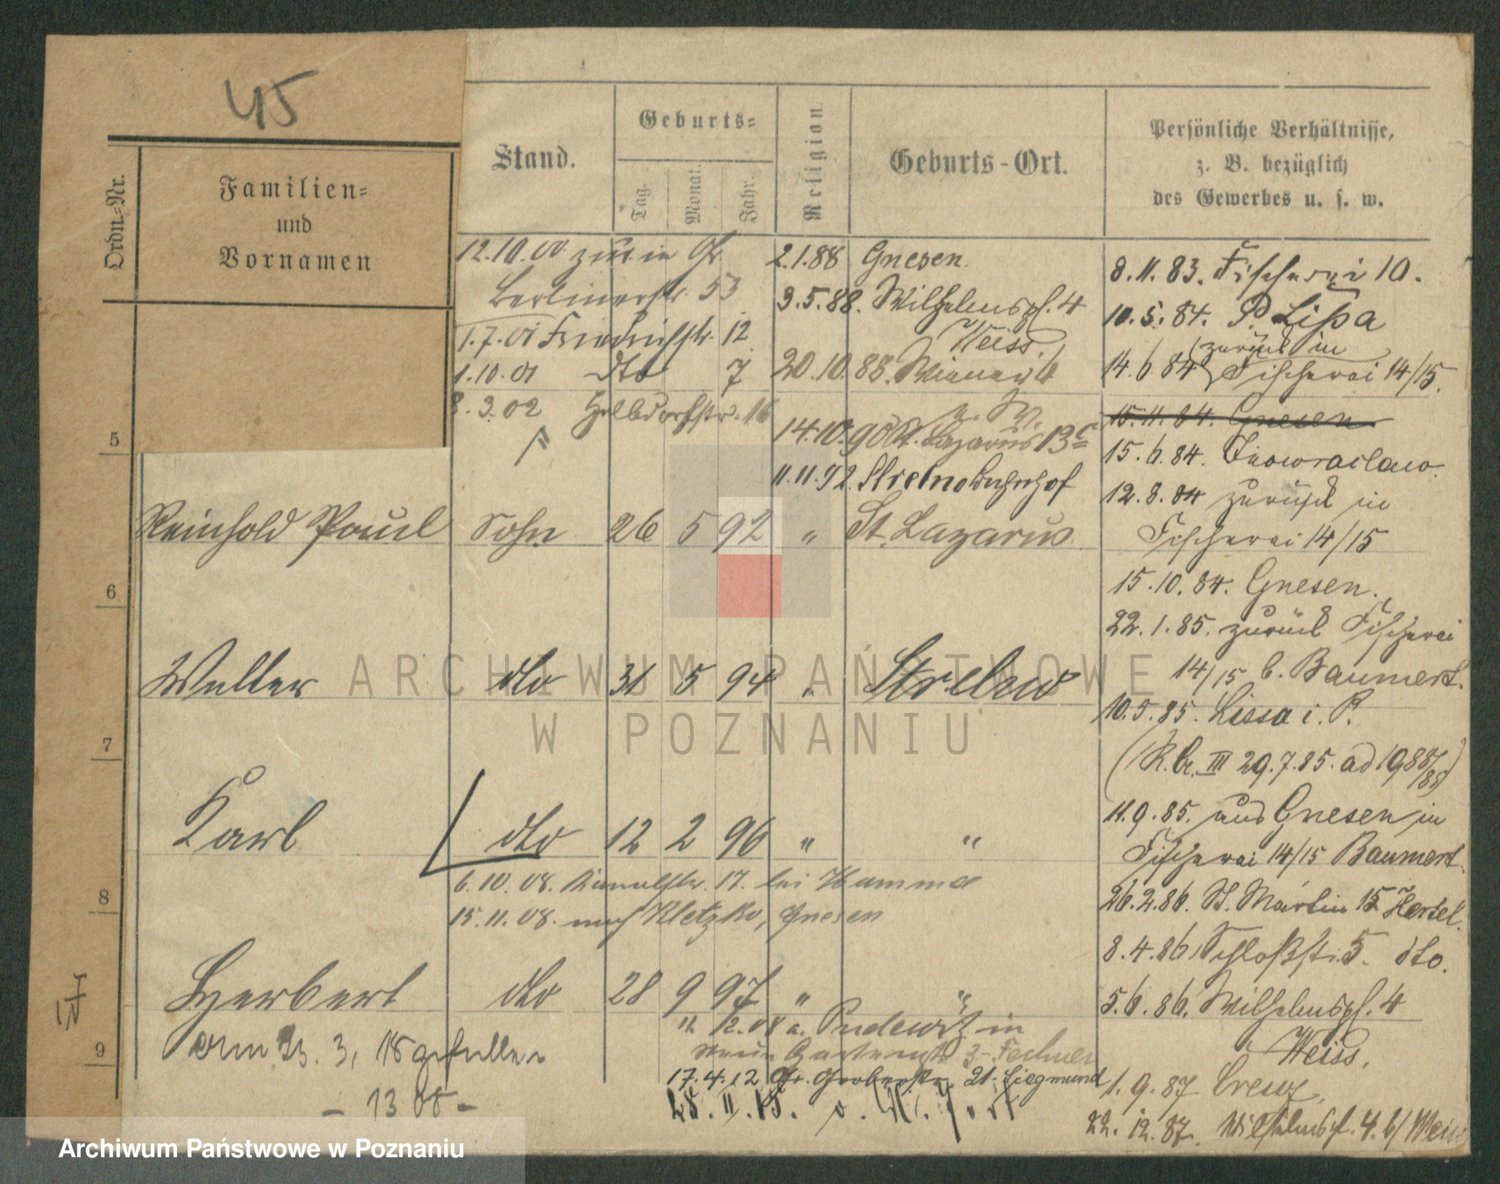 45
Ordn.-Nr.
Familien-
und
Vornamen
Stand.
Geburts-
Tag.
Monat.
Jahr.
Religion
Geburts-Ort.
Persönliche Verhältnisse,
z. B. bezüglich
des Gewerbes u. s. w.
12.10.00 zur in
Berlinerstr. 53
1.7.01 Friedrichstr. 12
1.10.01 dto 7
3.02 16
2.1.88 Gnesen
3.5.88. Wilhelmspl. 4
Weiss.
20.10.88.
14.10.90 St. Lazarus 13c
11.11.92. Strelno Bahnhof
5
Reinhold Paul Sohn 26 5 92 " St. Lazarus
6
Walter dto 31 5 94 " Strelno
7
Karl dto 12 2 96 " "
6.10.08. 17. bei
15.11.08. nach Kletzko, Gnesen
8
Herbert dto 28 9 97 " "
am 23. 3. 18 gefallen
- 1308 -
12.08 a. Pudewitz in
17.4.12 21. Siegmund
28.11.15.
9
8.11.83. Fischerei 10.
10.5.84. P. Lissa
14.6.84 zurück in
Fischerei 14/15.
15.11.84. Gnesen
15.6.84. Inowraclaw.
12.8.84 zurück in
Fischerei 14/15
15.10.84. Gnesen.
22.1.85. zurück Fischerei
14/15 b. Baumert.
10.5.85. Lissa i. P.
III 29.7.85. ad
11.9.85. aus Gnesen in
Fischerei 14/15 Baumert
26.2.86. St. Martin 15
8.4.86. Schloßstr. 5. dto.
5.6.86. Wilhelmspl. 4
Weiss.
1.9.87
22.12.87. Wilhelmspl. 4. b/ Weiss
ARCHIWUM PAŃSTWOWE
W POZNANIU
Archiwum Państwowe w Poznaniu